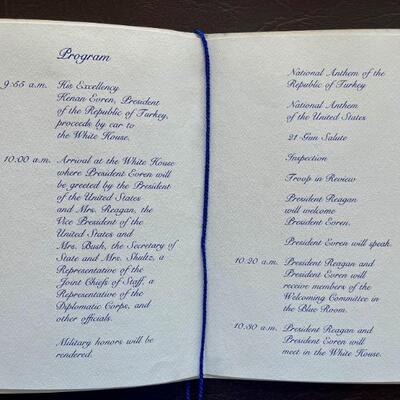 Program
9:55 a.m. His Excellency
Kenan Evren, President
of the Republic of Turkey,
proceeds by car to
the White House.
10:00 a.m. Arrival at the White House
where President Evren will
be greeted by the President
of the United States
and Mrs. Reagan, the
Vice President of the
United States and
Mrs. Bush, the Secretary of
State and Mrs. Shultz, a
Representative of the
Joint Chiefs of Staff, a
Representative of the
Diplomatic Corps, and
other officials.
Military honors will be
rendered.
National Anthem of the
Republic of Turkey
National Anthem
of the United States
21-Gun Salute
Inspection
Troop in Review
President Reagan
will welcome
President Evren.
President Evren will speak.
10:20 a.m. President Reagan and
President Evren will
receive members of the
Welcoming Committee in
the Blue Room.
10:30 a.m. President Reagan and
President Evren will
meet in the White House.